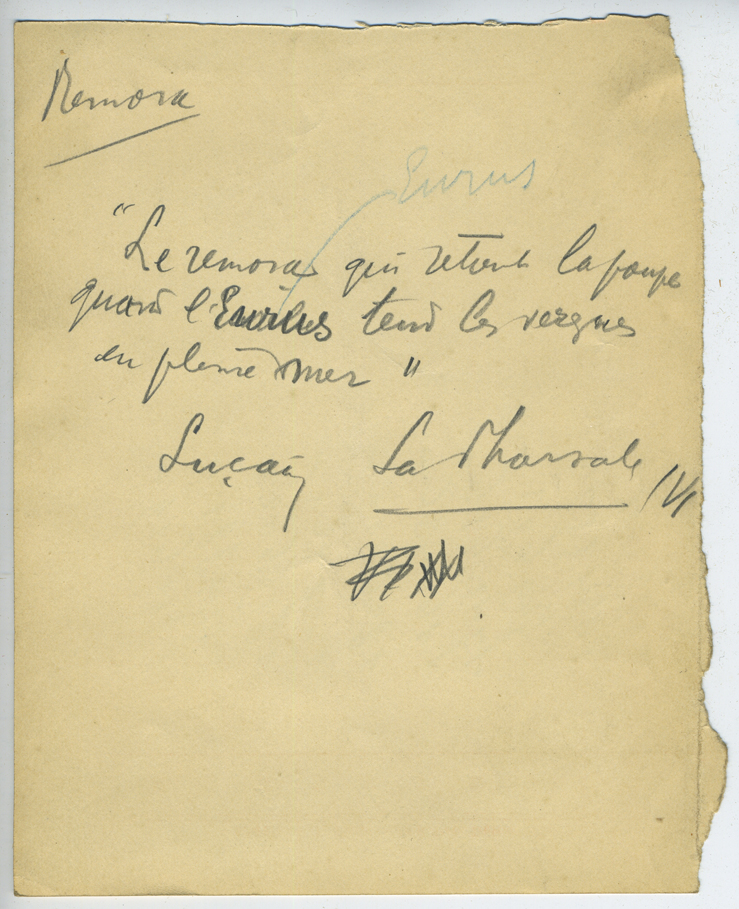 Remora
Eurus
"Le remora qui retient la poupe
quand l'Eurus tend les vergues
en pleine mer"
Lucain La Pharsale